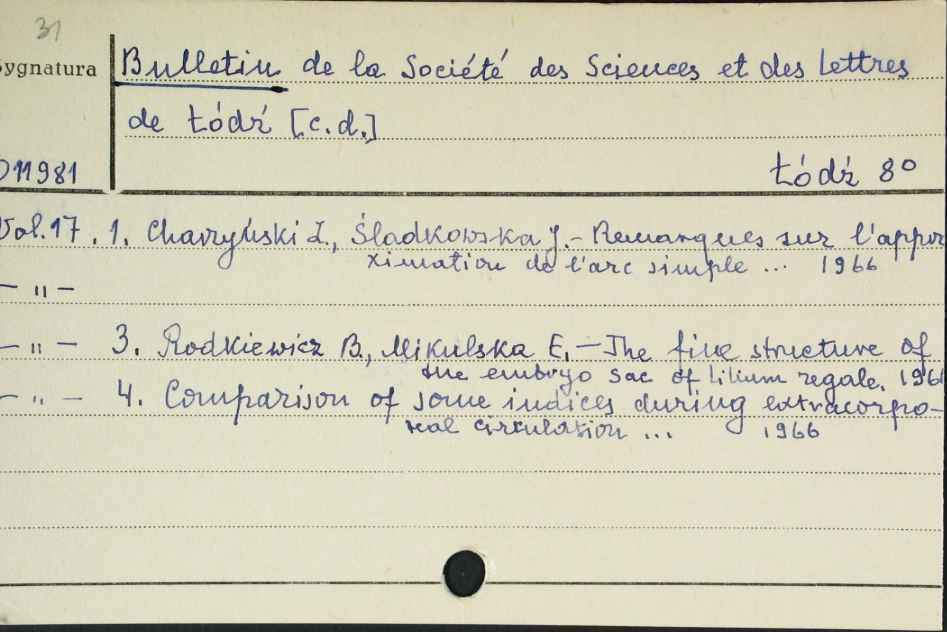 31
Sygnatura
Bulletin de la Société des Sciences et des Lettres
de Łódź [c.d.]
D11981
Łódź 8°
Vol.17. 1. Charzyński Z., Śladkowska J. - Remarques sur l'appro
ximation de l'arc simple ... 1966
— " —
— " — 3. Rodkiewicz B., Mikulska E. - The fine structure of
the embryo sac of Lilium regale. 1966
— " — 4. Comparison of some indices during extracorpo-
real circulation ... 1966